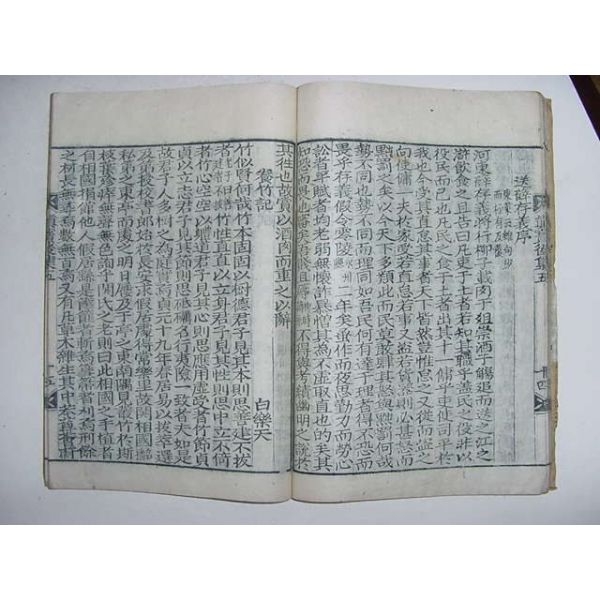 送薛存義序
河東薛存義將行柳子載肉于俎崇酒于觴追而送之江之
滸飲食之且告曰凡吏于土者若知其職乎盖民之役非以
役民而已也凡民之食於土者出其十一傭乎吏使司平於
我也今受其直怠其事者天下皆然豈惟怠之又從而盜之
向使傭一夫於家受若直怠若事又盜若貨器則必甚怒而
黜罰之矣以今天下多類此而民莫敢肆其怒與黜罰何哉
勢不同也勢不同而理同如吾民何有達于理者得不恐而
畏乎存義假令零陵二年矣蚤作而夜思勤力而勞心
訟者平賦者均老弱無懷詐暴憎其為不虛取直也的矣其
知恐而畏也審矣吾賤且辱不得與考績幽明之說於
其往也故賞以酒肉而重之以辭
養竹記 白樂天
竹似賢何哉竹本固固以樹德君子見其本則思善建不拔
者竹性直直以立身君子見其性則思中立不倚
者竹心空空以體道君子見其心則思應用虛受者竹節貞
貞以立志君子見其貞則思砥礪名行夷險一致者夫如是
故君子人多樹之為庭實焉貞元十九年春居易以拔萃選
及第授校書郎始於長安求假居處得常樂里故關相國
私第之東亭而處之明日履及于亭之東南隅見叢竹於斯
枝葉殄瘁無聲無色詢于關氏之老則曰此相國之手植者
自相國捐館他人假居繇是筐篚者斬焉篲箒者刈焉刑餘
之材長無尋焉數無百焉又有凡草木雜生其中菶茸薈